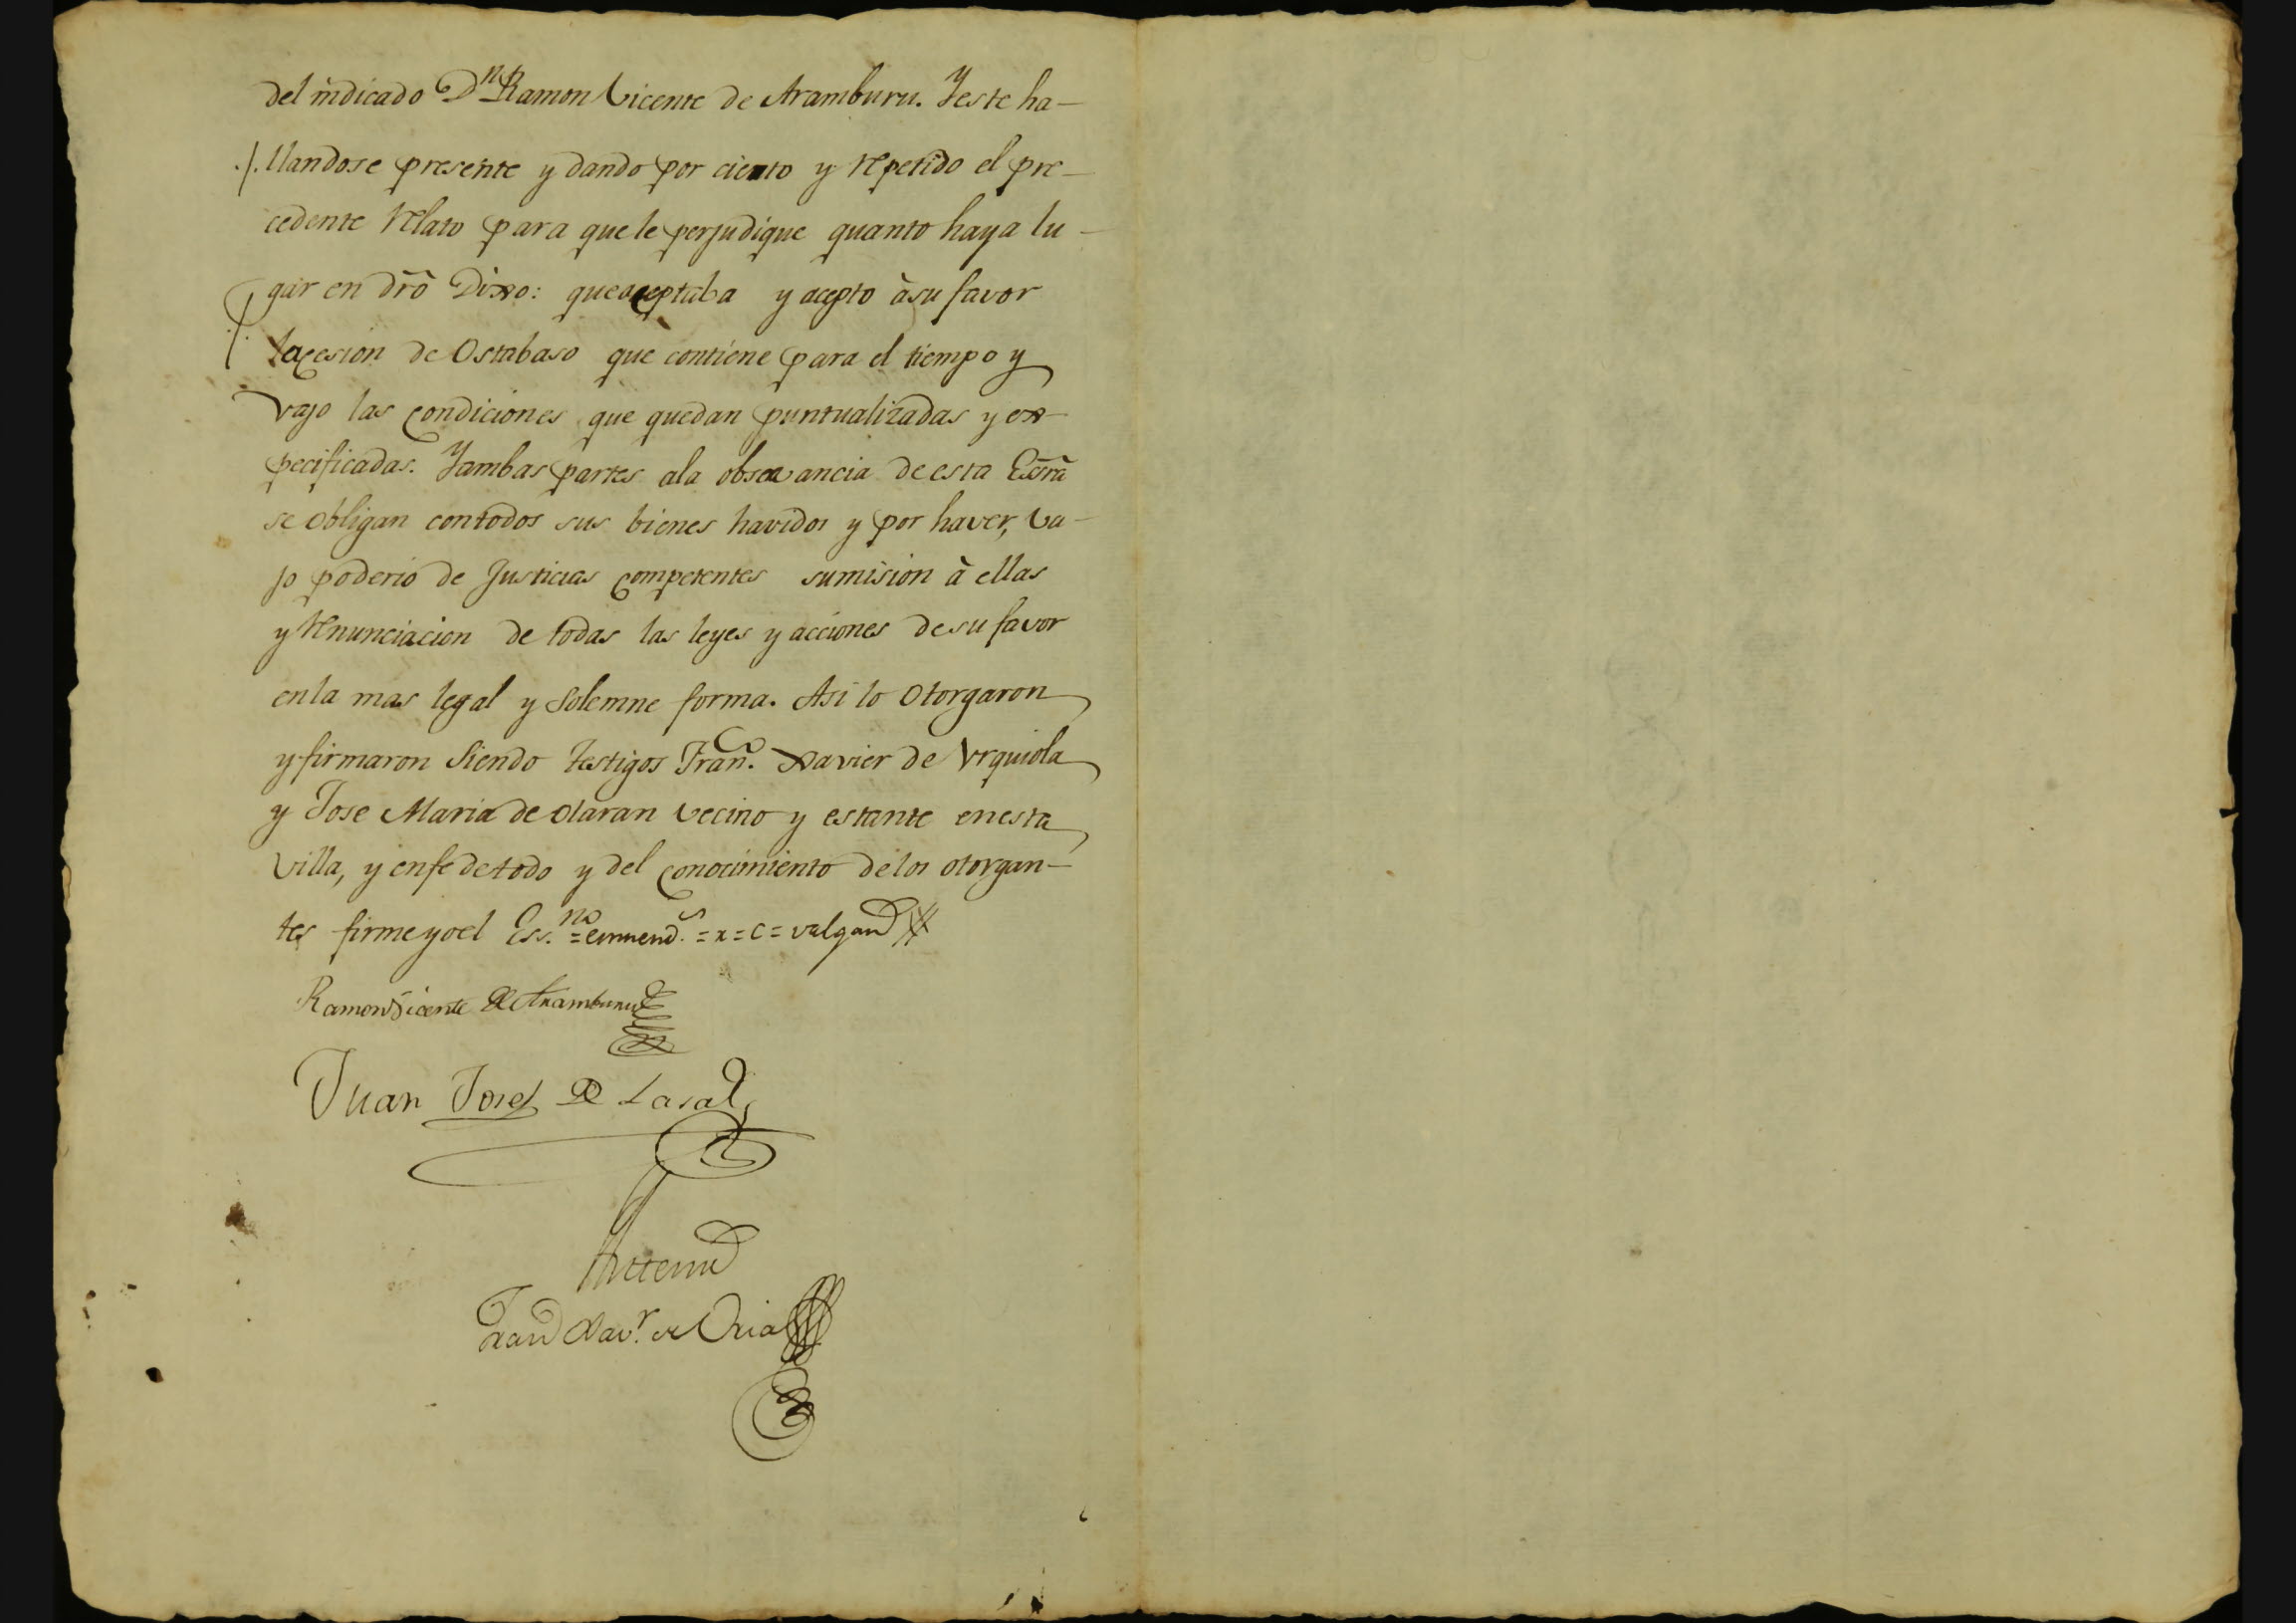 del indicado Dn Ramon Vicente de Aramburu. Y este ha-
llandose presente y dando por cierto y repetido el pre-
cedente relato para que le perjudique quanto haya lu-
gar en dro Dixo: que aceptaba y acepto àsu favor
la cesion de Ostabaso que contiene para el tiempo y
vajo las condiciones que quedan puntualizadas y ex-
pecificadas. Y ambas partes ala observancia de esta Essra
se obligan con todos sus bienes havidos y por haver, va-
jo poderio de Justicias competentes sumision à ellas
y renunciacion de todas las leyes y acciones de su favor
en la mas legal y solemne forma. Asi lo otorgaron
y firmaron siendo testigos Franco. Xavier de Urquiola
y Jose Maria de Olaran vecino y estante en esta
villa, y en fe de todo y del conocimiento de los otorgan-
tes firme yo el Essno. = enmendos. = x = c = valgan
Ramon Vicente de Aramburu
Juan Josef de Lasa
Ante mi
Franco Xavr. de Oria